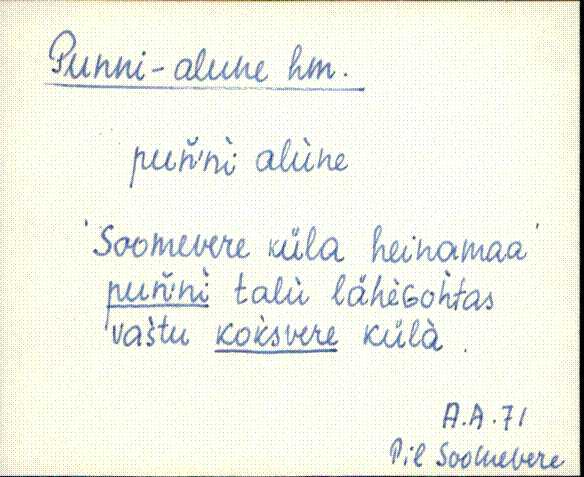 Punni-alune hm.
puǹ'ni alùne
'Soomevere küla heinamaa'
puǹ'nì talù lähèGohtas
'vaštu koìsvere külà.
A.A.71
Pil Soomevere